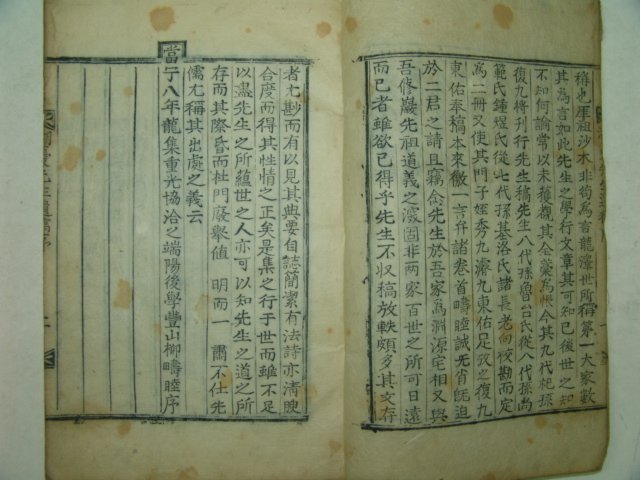 稱也厓祖沙木非苟爲者龍潭世所稱第一大家數
其爲言如此先生之學行文章其可知已後世之知
不知何論常以未獲覩其全藁爲恨今其九代祀孫
復九將刊行先生稿先生八代孫魯台氏從八代孫尙
範氏鍾煜氏從七代孫基洛氏諸長老向校勘而定
爲二冊又使其門子姪秀九濬九東佑足攷之復九
東佑奉稿本來徵一言弁諸卷首疇睦誠无肖旣迫
於二君之請且竊念先生於吾家爲淵源宅相又與
吾修巖先祖道義之深固非兩家百世之所可日遠
而已者雖欲已得乎先生不収稿放軼頗多其文存
者尤尠而有以見其典要自誌簡潔有法詩亦淸腴
合度而得其性情之正矣是集之行于世而雖不足
以盡先生之所蘊世之人亦可以知先生之道之所
存而其際昏而杜門廢擧値 明而一 肅不仕先
儒尤稱其出處之義云
當宁八年龍集重光協洽之端陽後學豐山柳疇睦序